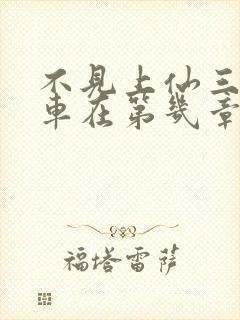 不見上仙三
車在第幾章
福塔雷萨